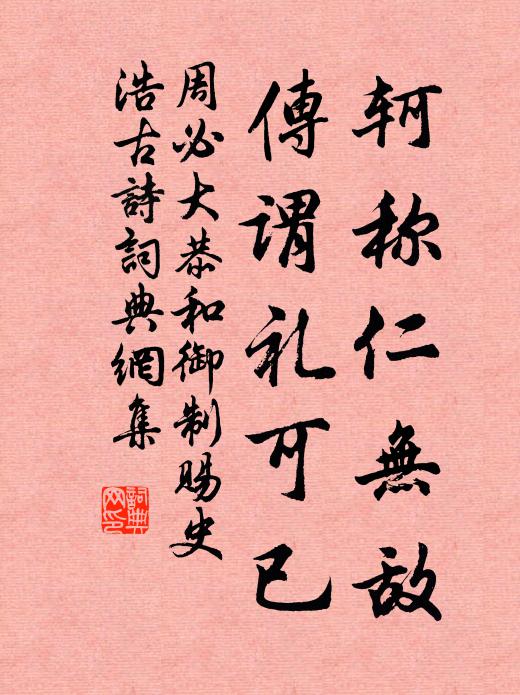 轲称仁無敌
傳谓礼可已
周必大恭和御制賜史
浩古詩詞典網集
詞典网印